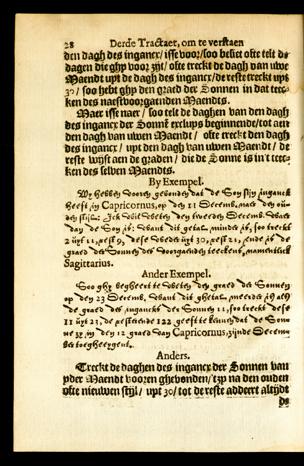 28 Derde Tractaet, om te verstaen
den dagh des ingancx/ isse voor/ soo besiet ofte telt de
dagen die ghy voor zijt/ ofte treckt de dagh van uwe
Maendt upt de dagh des ingancx/ de reste treckt upt
30/ soo hebt ghy den graed der Sonnen in dat teec-
ken des naestvoorgaenden Maendts.
Maer isse naer/ soo telt de daghen van den dagh
des ingancx der Sonne exclups beginnende/ tot aen
den dagh van uwen Maendt/ ofte treckt den dagh
des ingancx/ upt den dagh van uwen Maendt/ de
reste wijst aen de graden/ die de Sonne is in't teec-
ken des selven Maendts.
By Exempel.
Wy hebben vooren gevonden dat de Son zijn inganck
heeft in Capricornus, op den 11 Decemb. naer den ou-
den stijl: Ick wil weten den tweeden Decemb. waer
de Son is: want dit getal minder is, soo treckt
2 uyt 11, rest 9, dese weder uyt 30, rest 21, ende is de
graed der Sonnen des voorgaenden teeckens, namentlick
Sagittarius.
Ander Exempel.
Soo ghy begheert te weten den graed der Sonnen
op den 23 Decemb. want dit ghetal meerder is als
de graed des inganckx der Sonnen 11, soo treckt dese
11 uyt 23, de resterende 12 geeft te kennen dat de Son-
ne is in den 12 graed van Capricornus, zijnde Decem-
ber toegheeygent.
Anders.
Treckt de daghen des ingancx der Sonnen van
yder Maendt vooren ghevonden/ 't zy na den ouden
ofte nieuwen stijl/ upt 30/ tot de reste addeert altijdt
de